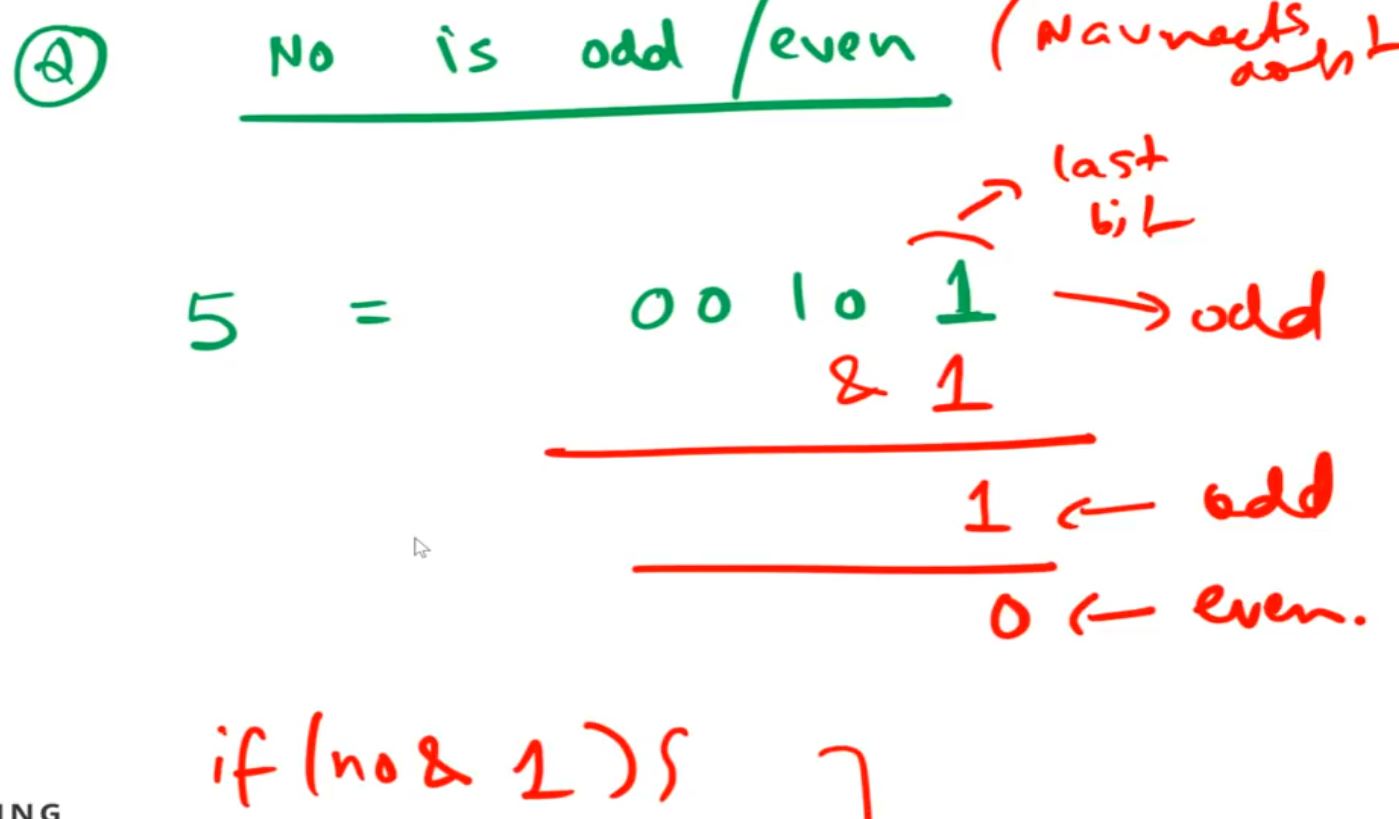 Q No is odd/even (Navneets
last
bit
5 = 00101 → odd
& 1
1 ← odd
0 ← even.
if (no & 1) {
ING